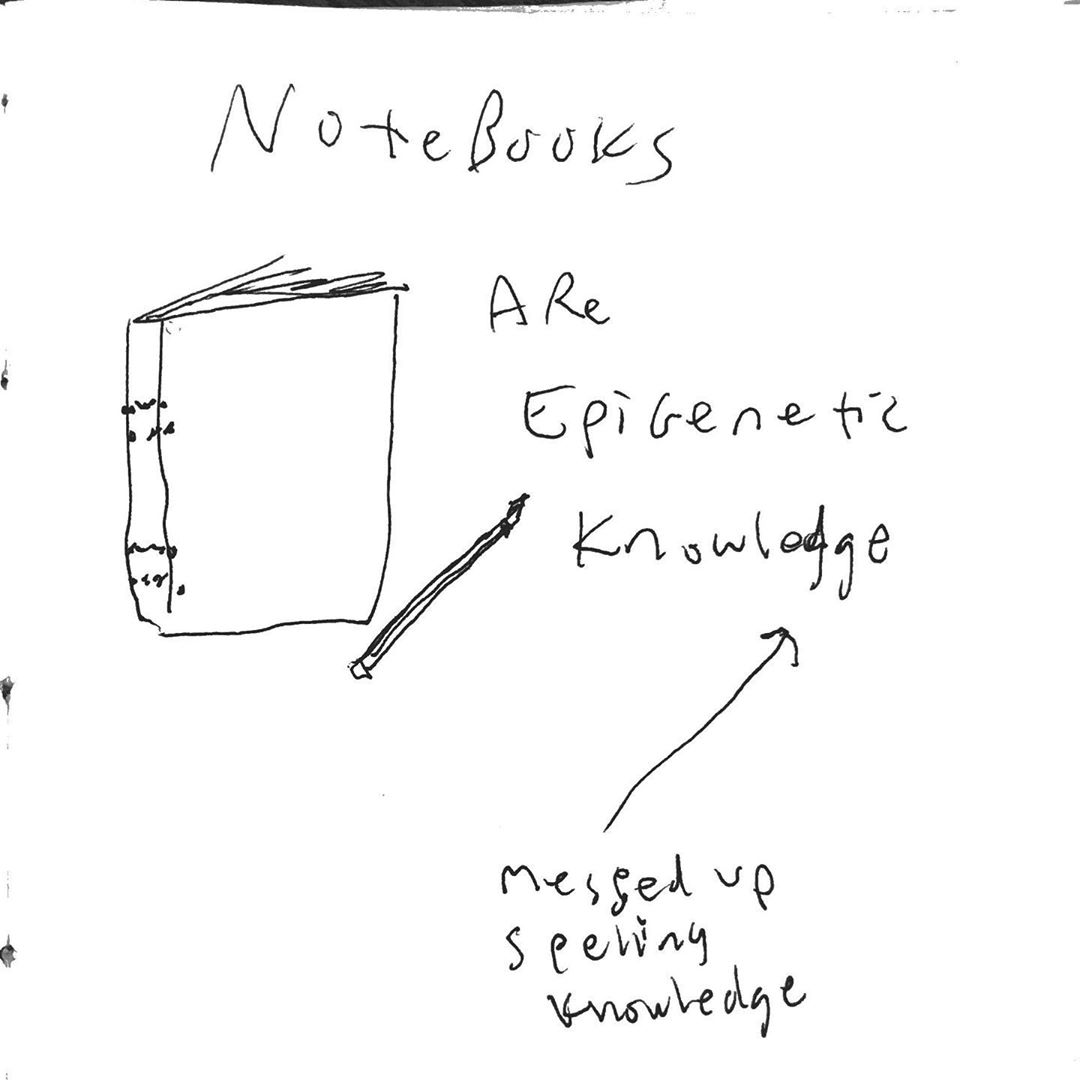 NoteBooks
ARe
EpiGenetic
Knowledge
messed up
spelling
knowledge